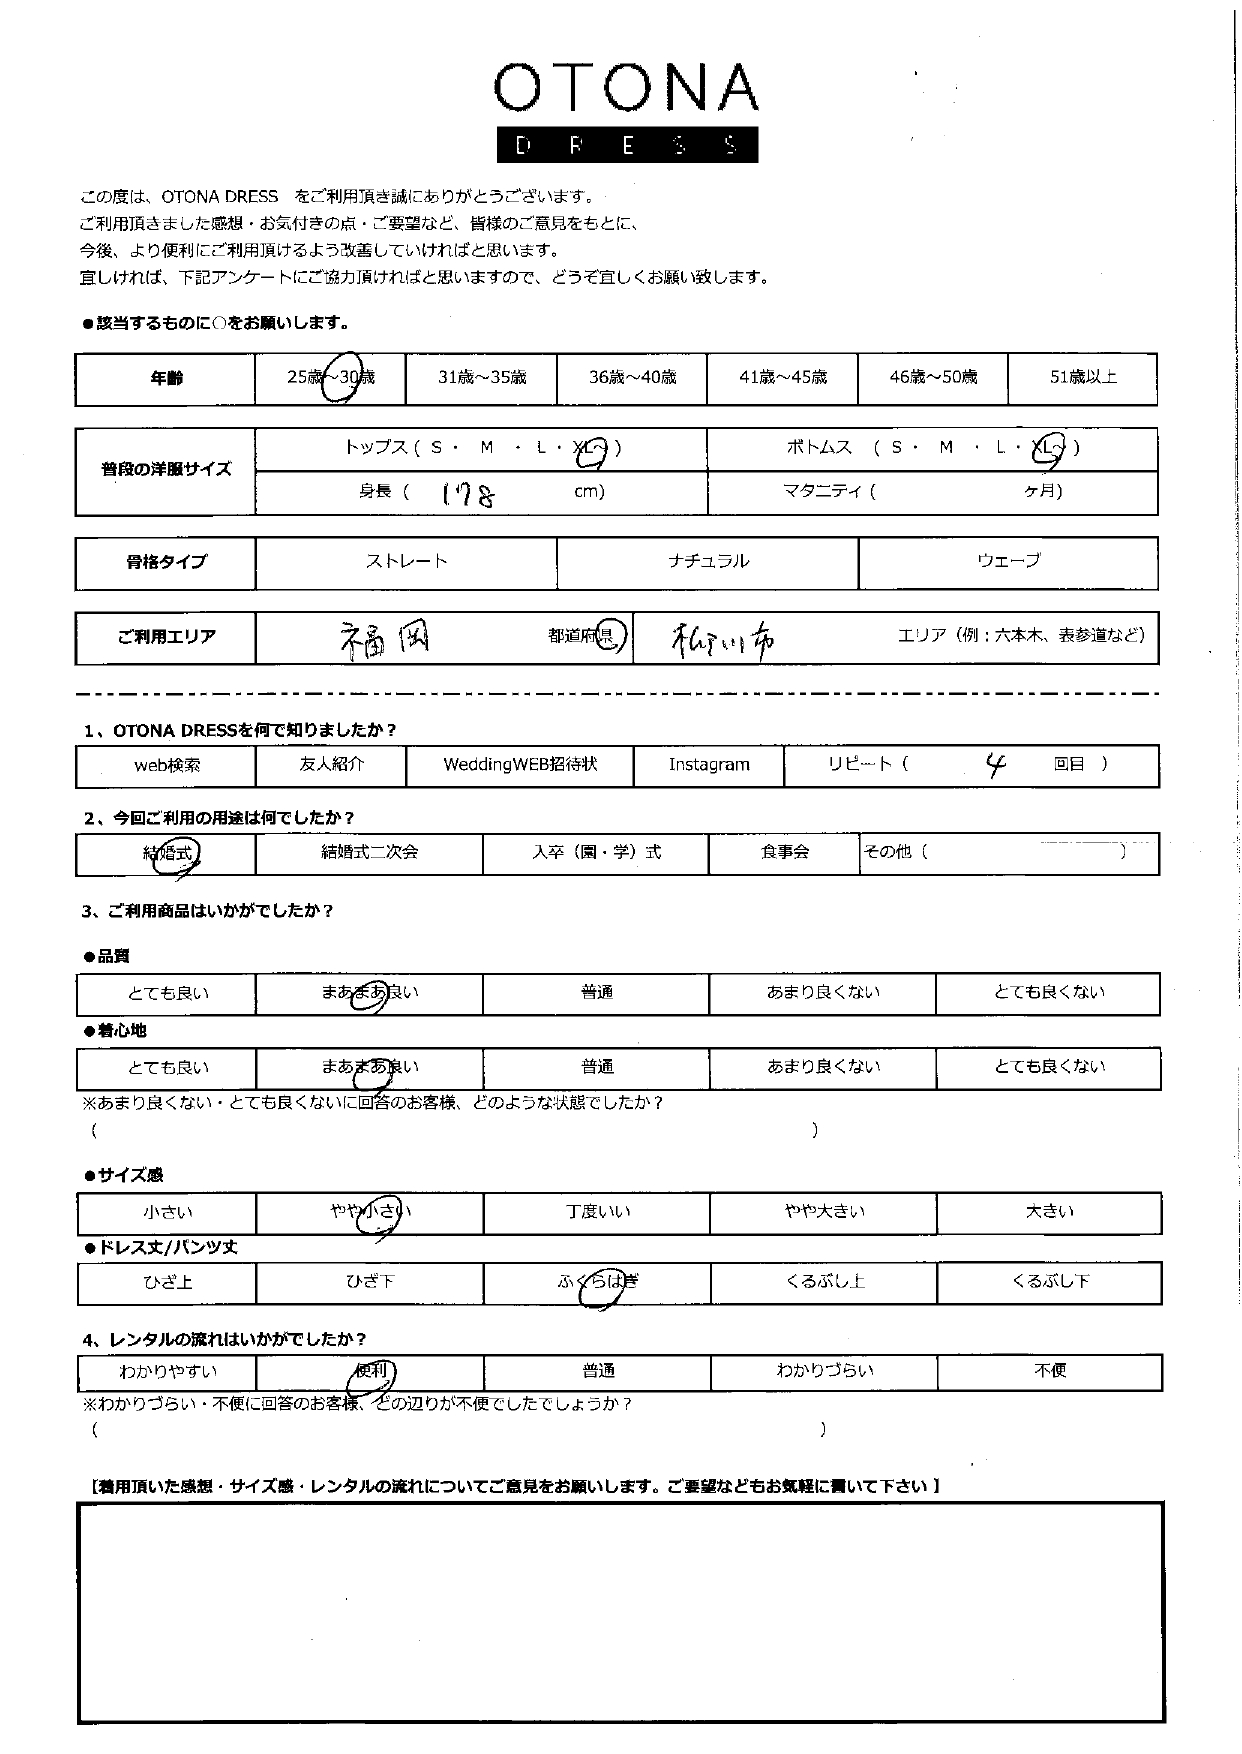 OTONA
DRESS
この度は、OTONA DRESS　をご利用頂き誠にありがとうございます。
ご利用頂きました感想・お気付きの点・ご要望など、皆様のご意見をもとに、
今後、より便利にご利用頂けるよう改善していければと思います。
宜しければ、下記アンケートにご協力頂ければと思いますので、どうぞ宜しくお願い致します。
●該当するものに○をお願いします。
年齢 25歳～30歳 31歳～35歳 36歳～40歳 41歳～45歳 46歳～50歳 51歳以上
普段の洋服サイズ トップス ( S ・ M ・ L ・ XL~ ) ボトムス ( S ・ M ・ L ・ XL~ )
身長 ( 178 cm) マタニティ ( ヶ月)
骨格タイプ ストレート ナチュラル ウェーブ
ご利用エリア 福岡 都道府県 柳川市 エリア（例：六本木、表参道など）
1、OTONA DRESSを何で知りましたか？
web検索 友人紹介 WeddingWEB招待状 Instagram リピート ( 4 回目 )
2、今回ご利用の用途は何でしたか？
結婚式 結婚式二次会 入卒（園・学）式 食事会 その他 ( )
3、ご利用商品はいかがでしたか？
●品質
とても良い まあまあ良い 普通 あまり良くない とても良くない
●着心地
とても良い まあまあ良い 普通 あまり良くない とても良くない
※あまり良くない・とても良くないに回答のお客様、どのような状態でしたか？
( )
●サイズ感
小さい やや小さい 丁度いい やや大きい 大きい
●ドレス丈/パンツ丈
ひざ上 ひざ下 ふくらはぎ くるぶし上 くるぶし下
4、レンタルの流れはいかがでしたか？
わかりやすい 便利 普通 わかりづらい 不便
※わかりづらい・不便に回答のお客様、どの辺りが不便でしたでしょうか？
( )
【着用頂いた感想・サイズ感・レンタルの流れについてご意見をお願いします。ご要望などもお気軽に書いて下さい 】